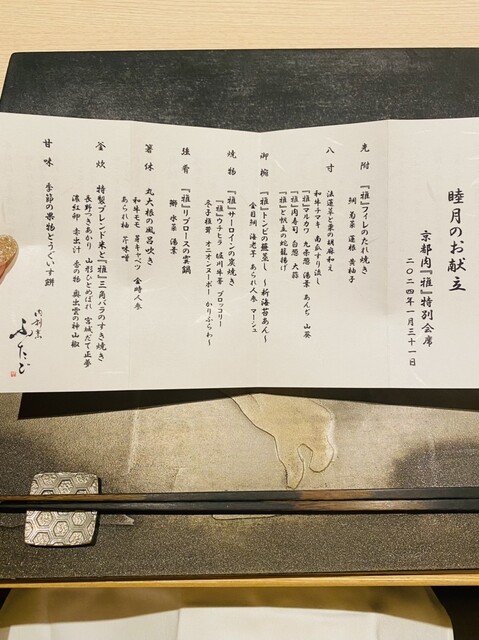 睦月のお献立
京都肉『雅』特別会席
二〇二四年一月三十一日
先附 『雅』フィレのたれ焼き
蟹 菊菜 蓮根 黄柚子
八寸 法蓮草と栗の胡麻和え
和牛チマキ 南瓜すり流し
『雅』マルカワ 九条葱 湯葉 あんぢ 山葵
『雅』肉寿司 白葱 大蒜
『雅』と帆立の蛇籠揚げ
御椀 『雅』トンビの蕪蒸し 〜新海苔あん〜
金目鯛 海老芋 あられ人参 マーシュ
焼物 『雅』サーロインの炭焼き
『雅』ウチヒラ 堀川牛蒡 ブロッコリー
冬子椎茸 オニオンヌーボー かりふらわ〜
強肴 『雅』リブロースの雲鍋
鰤 水菜 湯葉
箸休 丸大根の風呂吹き
和牛モモ 芽キャベツ 金時人参
あられ柚 芹味噌
釜炊 特製ブレンド米と『雅』三角バラのすき焼き
長野つきあかり 山形ひとめぼれ 宮城だて正夢
濃紅卵 赤出汁 香の物 奥出雲の神山椒
甘味 季節の果物とうぐいす餅
肉割烹
ふたご